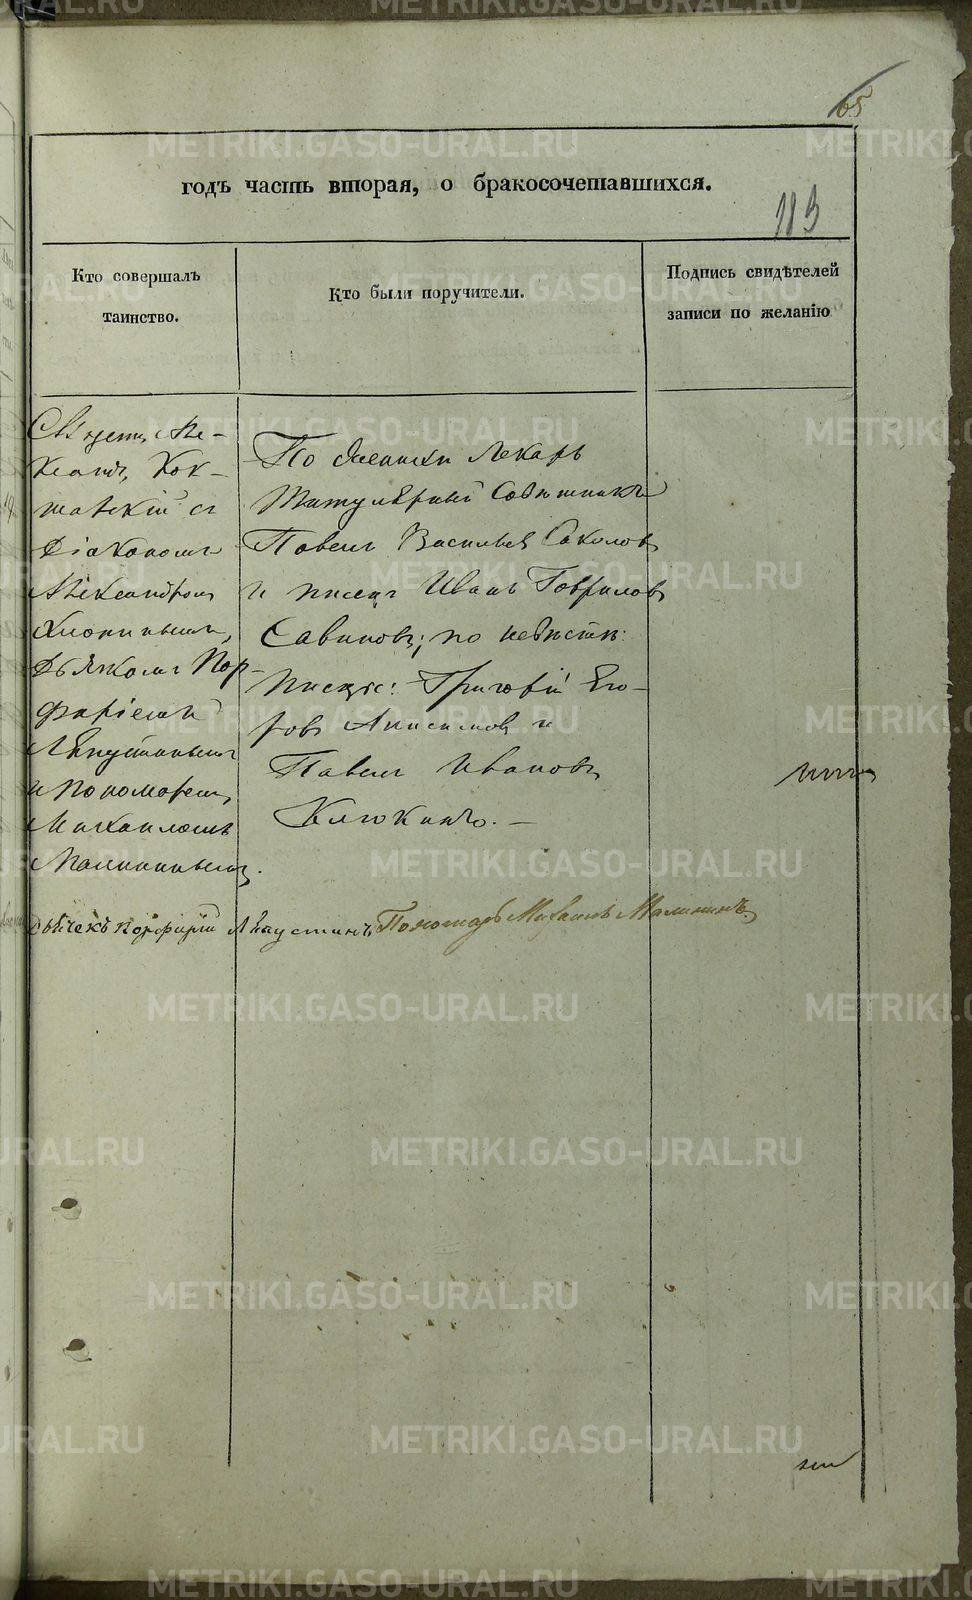 65
годъ часть вторая, о бракосочетавшихся.
113
Кто совершалъ
таинство.
Кто были поручители.
Подпись свидѣтелей
записи по желанію
Свящ. Але-
ксандръ Кок-
шавскій съ
Діакономъ
Александромъ
Хлопинымъ,
Дьячкомъ Пор-
фиріемъ
Ляпустинымъ
и Пономаремъ
Михаиломъ
Малининымъ.
По женихѣ Лекарь
Титулярный Совѣтникъ
Павелъ Васильевъ Соколовъ
и писецъ Иванъ Гавриловъ
Савиновъ; по невѣстѣ:
Писцы: Григорій Его-
ровъ Анисимовъ и
Павелъ Ивановъ
Клюкинъ. —
Дьячекъ Порфирій Ляпустинъ, Пономарь Михаилъ Малининъ.
METRIKI.GASO-URAL.RU